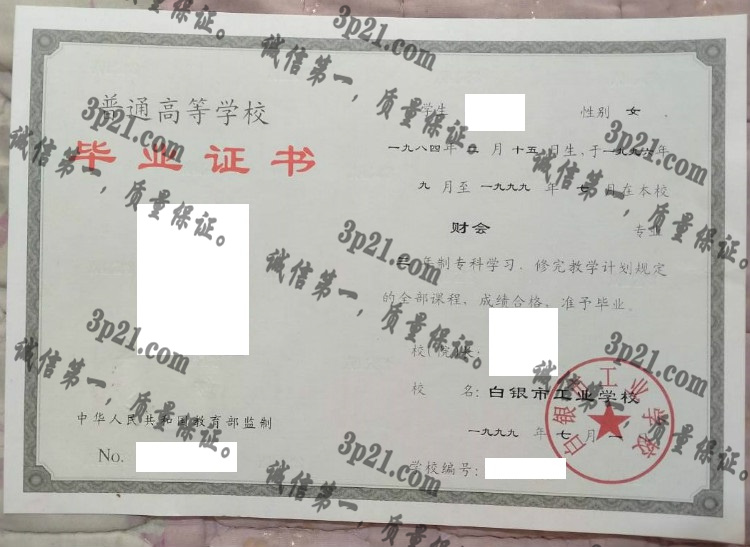 普通高等学校
毕业证书
中华人民共和国教育部监制
No.
学生 性别 女
一九八四年 月十五日生,于一九九六年
九月至一九九九年七月在本校
财会 专业
三年制专科学习,修完教学计划规定
的全部课程,成绩合格,准予毕业。
校(院)长:
校 名:白银市工业学校
一九九九年七月一
学校编号:
白银市工业学校
3p21.com
诚信第一,质量保证。
3p21.com
诚信第一,质量保证。
3p21.com
诚信第一,质量保证。
3p21.com
诚信第一,质量保证。
3p21.com
诚信第一,质量保证。
3p21.com
诚信第一,质量保证。
3p21.com
诚信第一,质量保证。
质量保证。